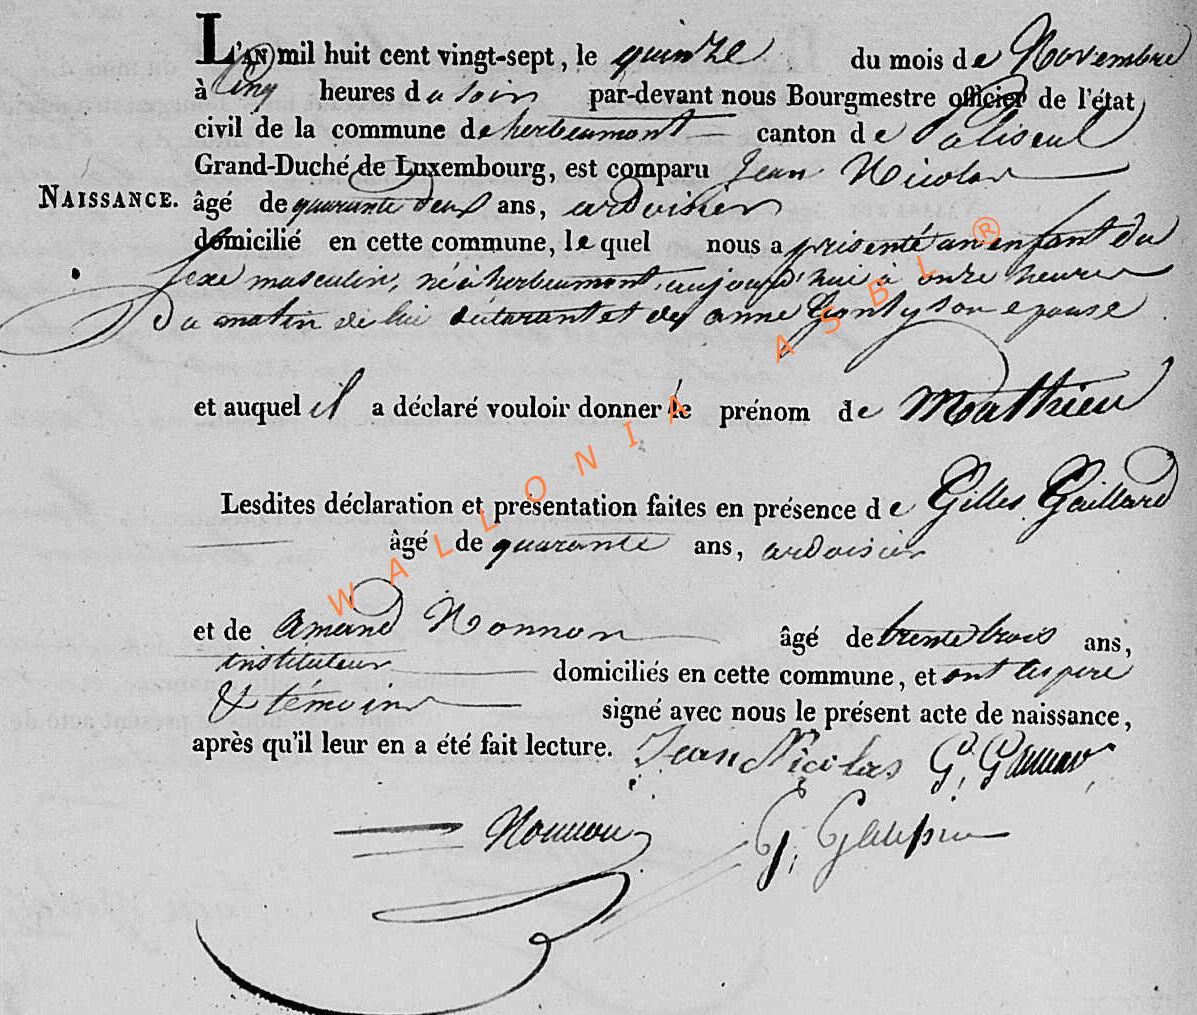 L'AN mil huit cent vingt-sept, le quinze du mois de Novembre
à cinq heures du soir par-devant nous Bourgmestre officier de l'état
civil de la commune de herbeumont canton de Paliseul
Grand-Duché de Luxembourg, est comparu Jean Nicolas
NAISSANCE. âgé de quarante deux ans, ardoisier
domicilié en cette commune, lequel nous a présenté un enfant du
sexe masculin, né à herbeumont, aujourd'hui à onze heures
du matin de lui déclarant et de anne son épouse
et auquel il a déclaré vouloir donner le prénom de Mathieu
Lesdites déclaration et présentation faites en présence de Gilles
âgé de quarante ans, ardoisier
et de amand Nonnon âgé de trente trois ans,
instituteur domiciliés en cette commune, et ont les père
& témoins signé avec nous le présent acte de naissance,
après qu'il leur en a été fait lecture. Jean Nicolas G.
Nonnon G.
WALLONIA ASBL ®